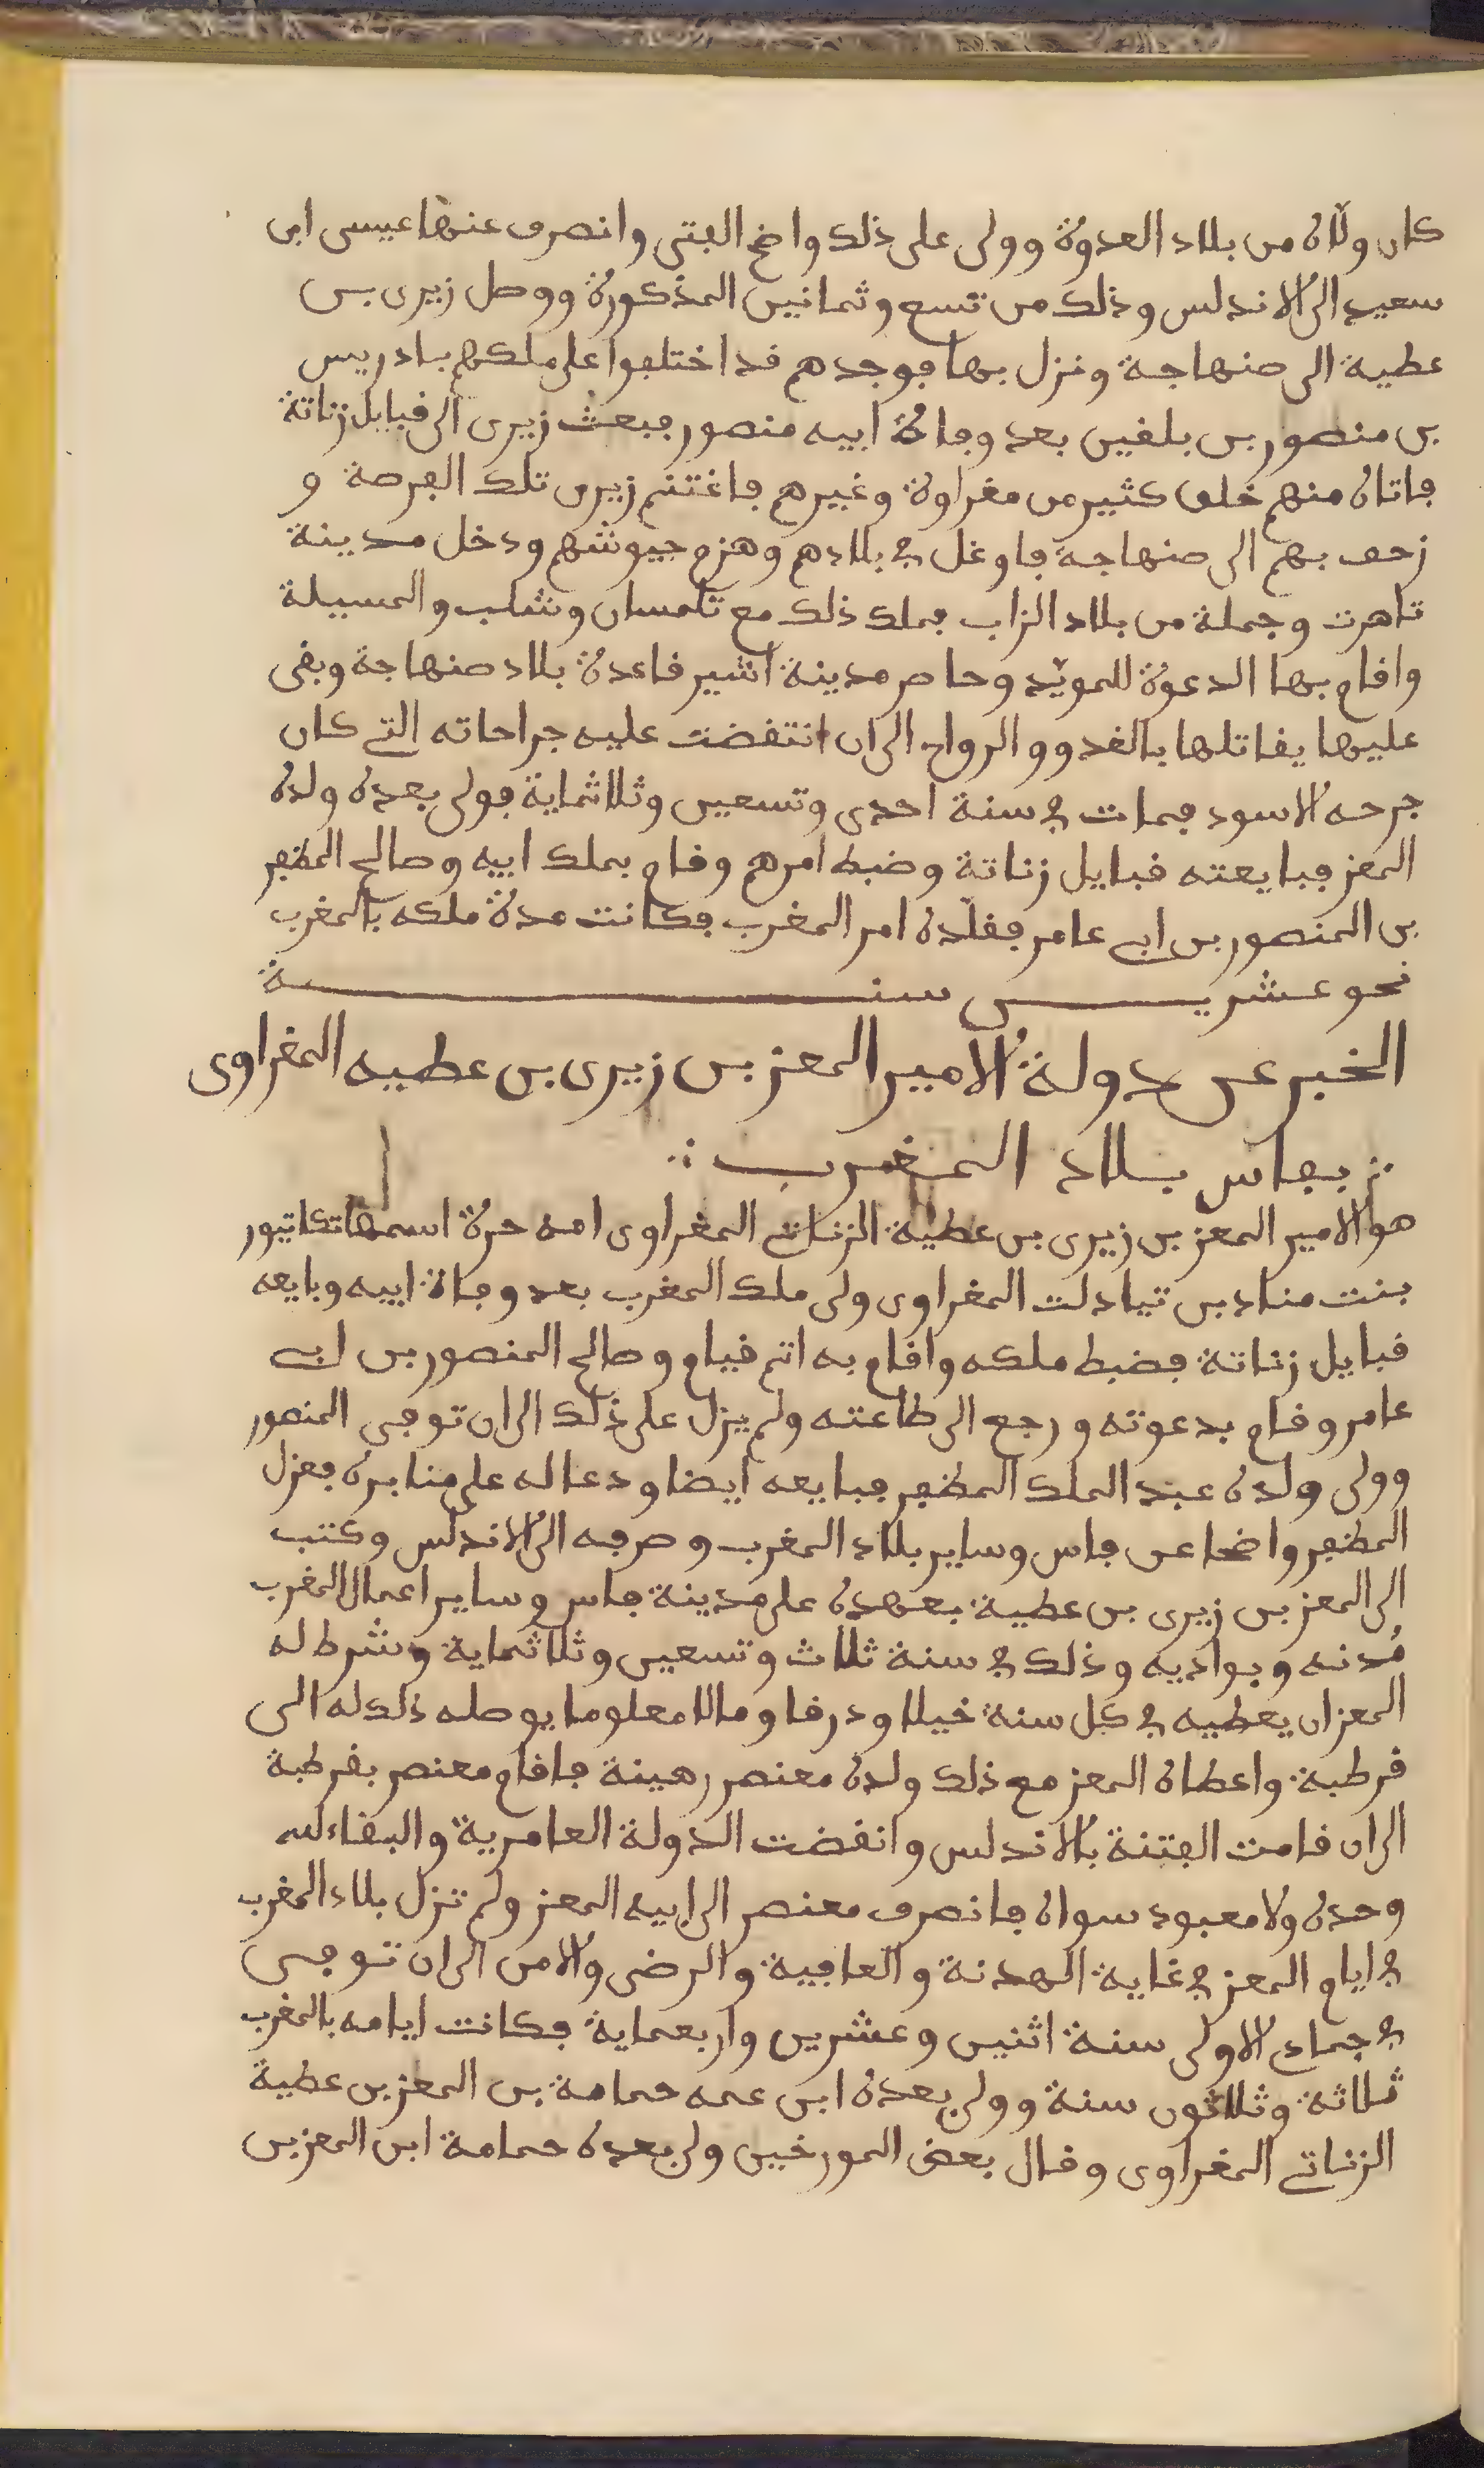 كان ولاه من بلاد العدوة وولى على ذلك واضح الفتى وانصرف عنها عيسى ابن
سعيد الى الاندلس وذلك من تسع وثمانين المذكورة ووصل زيرى بن
عطية الى صنهاجة ونزل بها فوجدهم قد اختلفوا على ملكهم بادريس
بن منصور بن بلقين بعد وفاة ابيه منصور فبعث زيرى الى قبايل زناتة
فاتاه منهم خلق كثير من مغراوة وغيرهم فاغتنم زيرى تلك الفرصة و
زحف بهم الى صنهاجة فاوغل في بلادهم وهزم جيوشهم ودخل مدينة
تاهرت وجملة من بلاد الزاب فملك ذلك مع تلمسان وشلب والمسيلة
واقام بها الدعوة للمويّد وحاصر مدينة اشير قاعدة بلاد صنهاجة وبقى
عليها يقاتلها بالغدو والرواح الى ان انتقضت عليه جراحاته التي كان
جرحه الاسود فمات في سنة احدى وتسعين وثلاثماية فولى بعده ولده
المعز فبايعته قبايل زناتة وضبط امرهم وقام بملك ابيه وصالح المظفر
بن المنصور بن ابي عامر فقلّده امر المغرب فكانت مدة ملكه بالمغرب
نحو عشرين سنة
الخبر عن دولة الامير المعز بن زيرى بن عطيه المغراوى
بفاس بلاد المغرب
هو الامير المعز بن زيرى بن عطية الزناتي المغراوى امه حرة اسمها تكاتيور
بنت مناد بن تيادلت المغراوى ولى ملك المغرب بعد وفاة ابيه وبايعه
قبايل زناتة فضبط ملكه واقام به اتم قيام وصالح المنصور بن ابي
عامر وقام بدعوته ورجع الى طاعته ولم يزل على ذلك الى ان توفى المنصور
وولى ولده عبد الملك المظفر فبايعه ايضا ودعا له على منابره فعزل
المظفر واضحا عن فاس وساير بلاد المغرب وصرفه الى الاندلس وكتب
الى المعز بن زيرى بن عطية بعهده على مدينة فاس وساير اعمال المغرب
مُدنه وبواديه وذلك في سنة ثلاث وتسعين وثلاثماية وشرط له
المعز ان يعطيه في كل سنة خيلا ودرقا ومالا معلوما يوصله ذلك له الى
قرطبة واعطاه المعز مع ذلك ولده معنصر رهينة فاقام معنصر بقرطبة
الى ان قامت الفتنة بالاندلس وانقضت الدولة العامرية والبقاء لله
وحده ولا معبود سواه فانصرف معنصر الى ابيه المعز ولم تزل بلاد المغرب
في ايام المعز في غاية الهدنة والعافية والرضى والامن الى ان توفى
في جماد الاولى سنة اثنين وعشرين واربعماية فكانت ايامه بالمغرب
ثلاثة وثلاثون سنة وولى بعده ابن عمه حمامة بن المعز بن عطية
الزناتي المغراوى وقال بعض المورخين ولى بعده حمامة ابن المعز بن